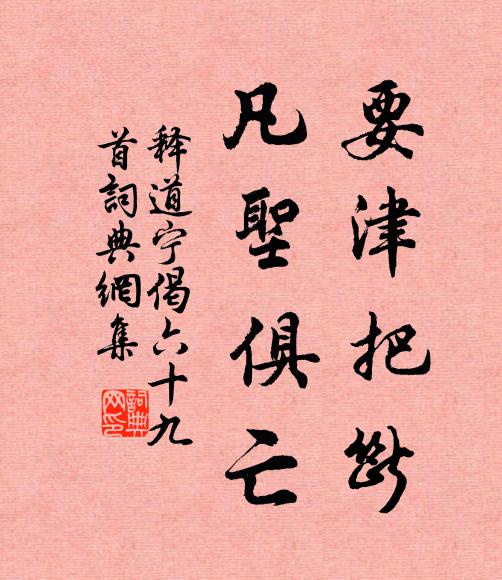 要津把断
凡聖俱亡
释道宁偈六十九
首詞典網集
詞典
网印